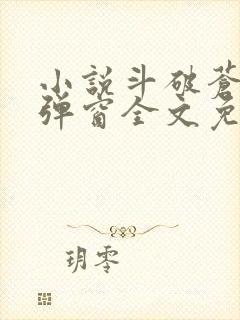 小說斗破蒼
弹窗全文免
玥零